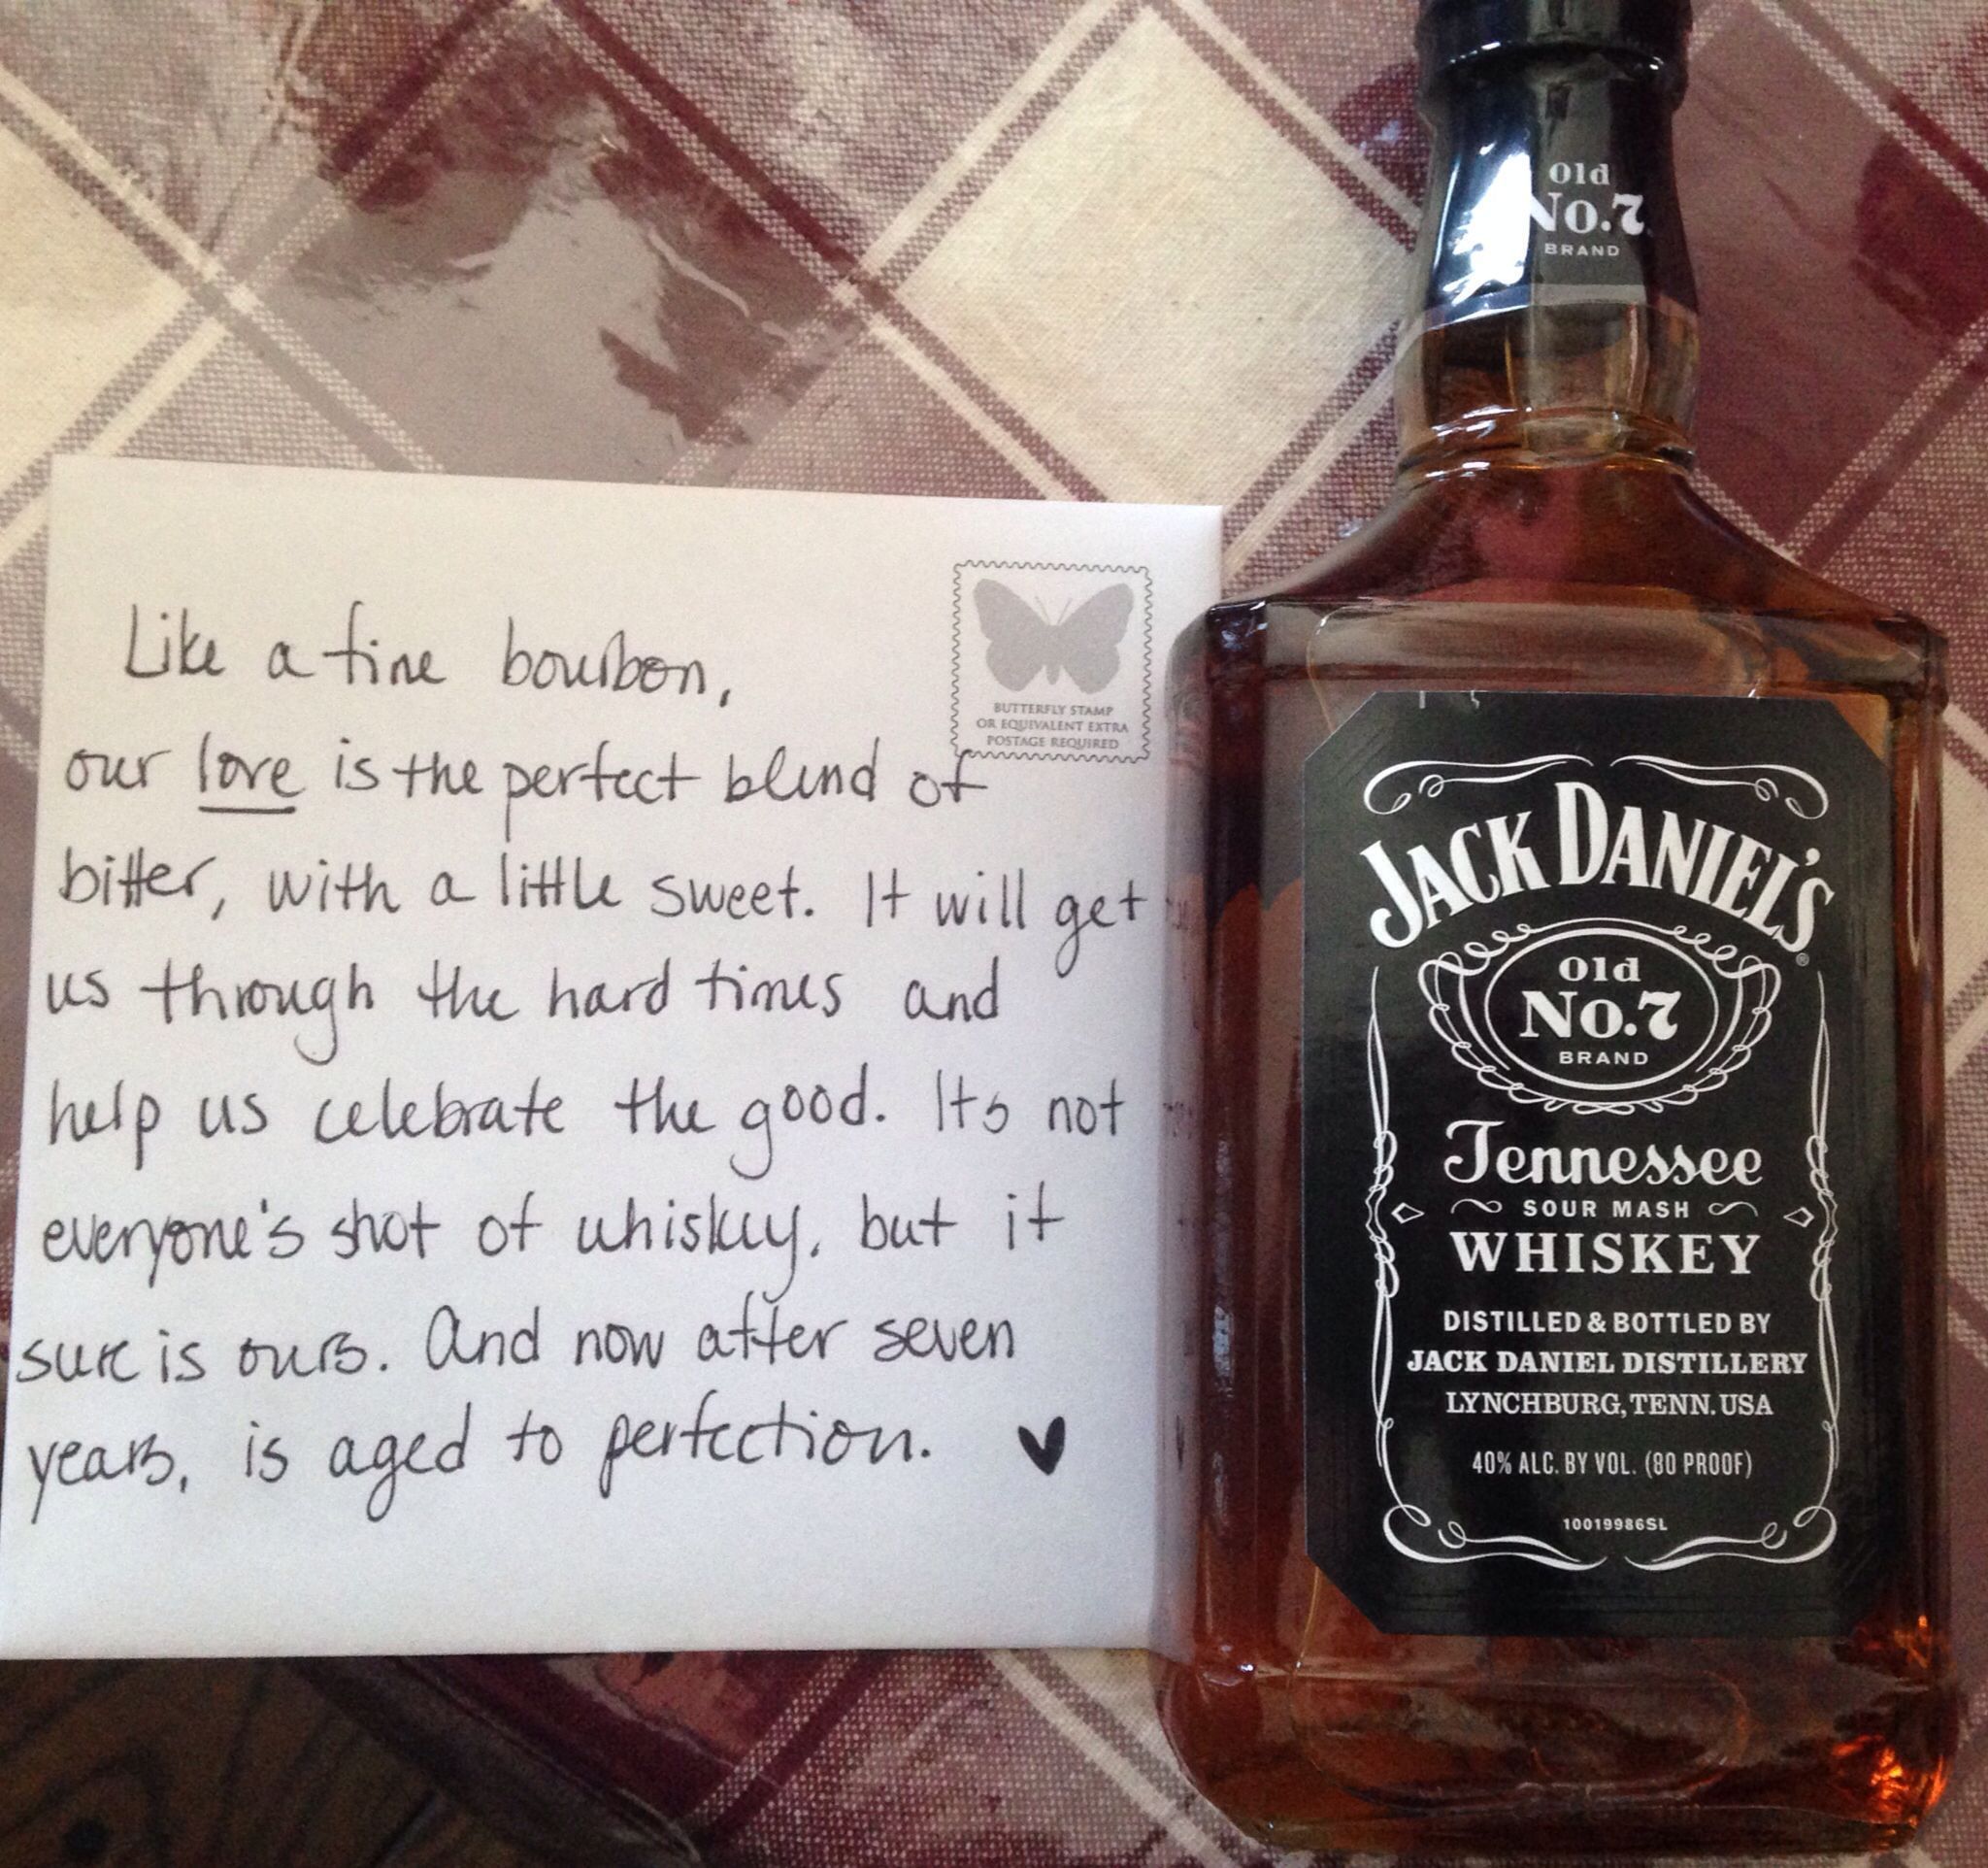 Like a fine bourbon,
our love is the perfect blend of
bitter, with a little sweet. It will get
us through the hard times and
help us celebrate the good. Its not
everyone's shot of whiskey, but it
sure is ours. And now after seven
years, is aged to perfection. ♥
BUTTERFLY STAMP
OR EQUIVALENT EXTRA
POSTAGE REQUIRED
Old
No.7
BRAND
JACK DANIEL'S®
Old
No.7
BRAND
Tennessee
SOUR MASH
WHISKEY
DISTILLED & BOTTLED BY
JACK DANIEL DISTILLERY
LYNCHBURG, TENN. USA
40% ALC. BY VOL. (80 PROOF)
10019986SL